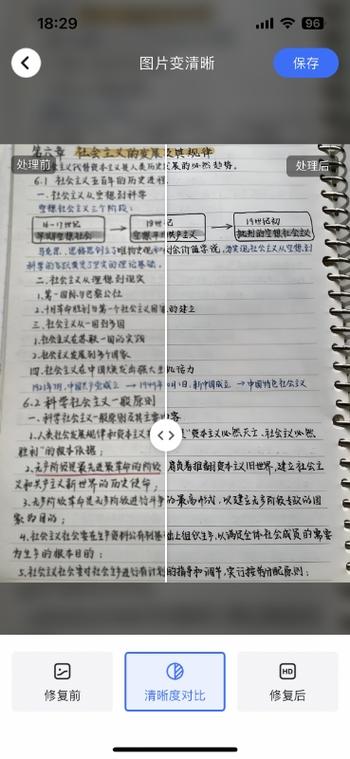 18:29
96
图片变清晰
保存
第六章 社会主义的发展及其规律
社会主义代替资本主义是人类历史发展的必然趋势。
处理前
处理后
6.1 社会主义五百年的历史进程
一.社会主义从空想到科学
空想社会主义三个阶段:
16-17世纪
19世纪初
早期空想社会
批判的空想社会主义
科学的飞跃奠定了坚实的理论基础。
二.社会主义从理想到现实
1.第一国际与巴黎公社
2.十月革命胜利与第一个社会主义国家的建立
三.社会主义从一国到多国
1.社会主义在苏联一国的实践
2.社会主义发展到多个国家
四.社会主义在中国焕发出强大生机活力
1921年7月,中国共产党成立 → 1949年10月1日,新中国成立 → 中国特色社会主义
6.2 科学社会主义一般原则
一.科学社会主义一般原则及其主要内容
1.人类社会发展规律和资本主义 "资本主义必然灭亡、社会主义必然
胜利"的根本依据;
2.无产阶级是最先进最革命的阶级 肩负着推翻资本主义旧世界,建立社会主
义和共产主义新世界的历史使命;
3.无产阶级革命是无产阶级进行斗争的最高形式,以建立无产阶级专政的国
家为目的;
4.社会主义社会要在生产资料公有制基础上组织生产,以满足全体社会成员的需要
为生产的根本目的;
5.社会主义社会要对社会生产进行有计划的指导和调节,实行按劳分配原则;
修复前
清晰度对比
HD
修复后